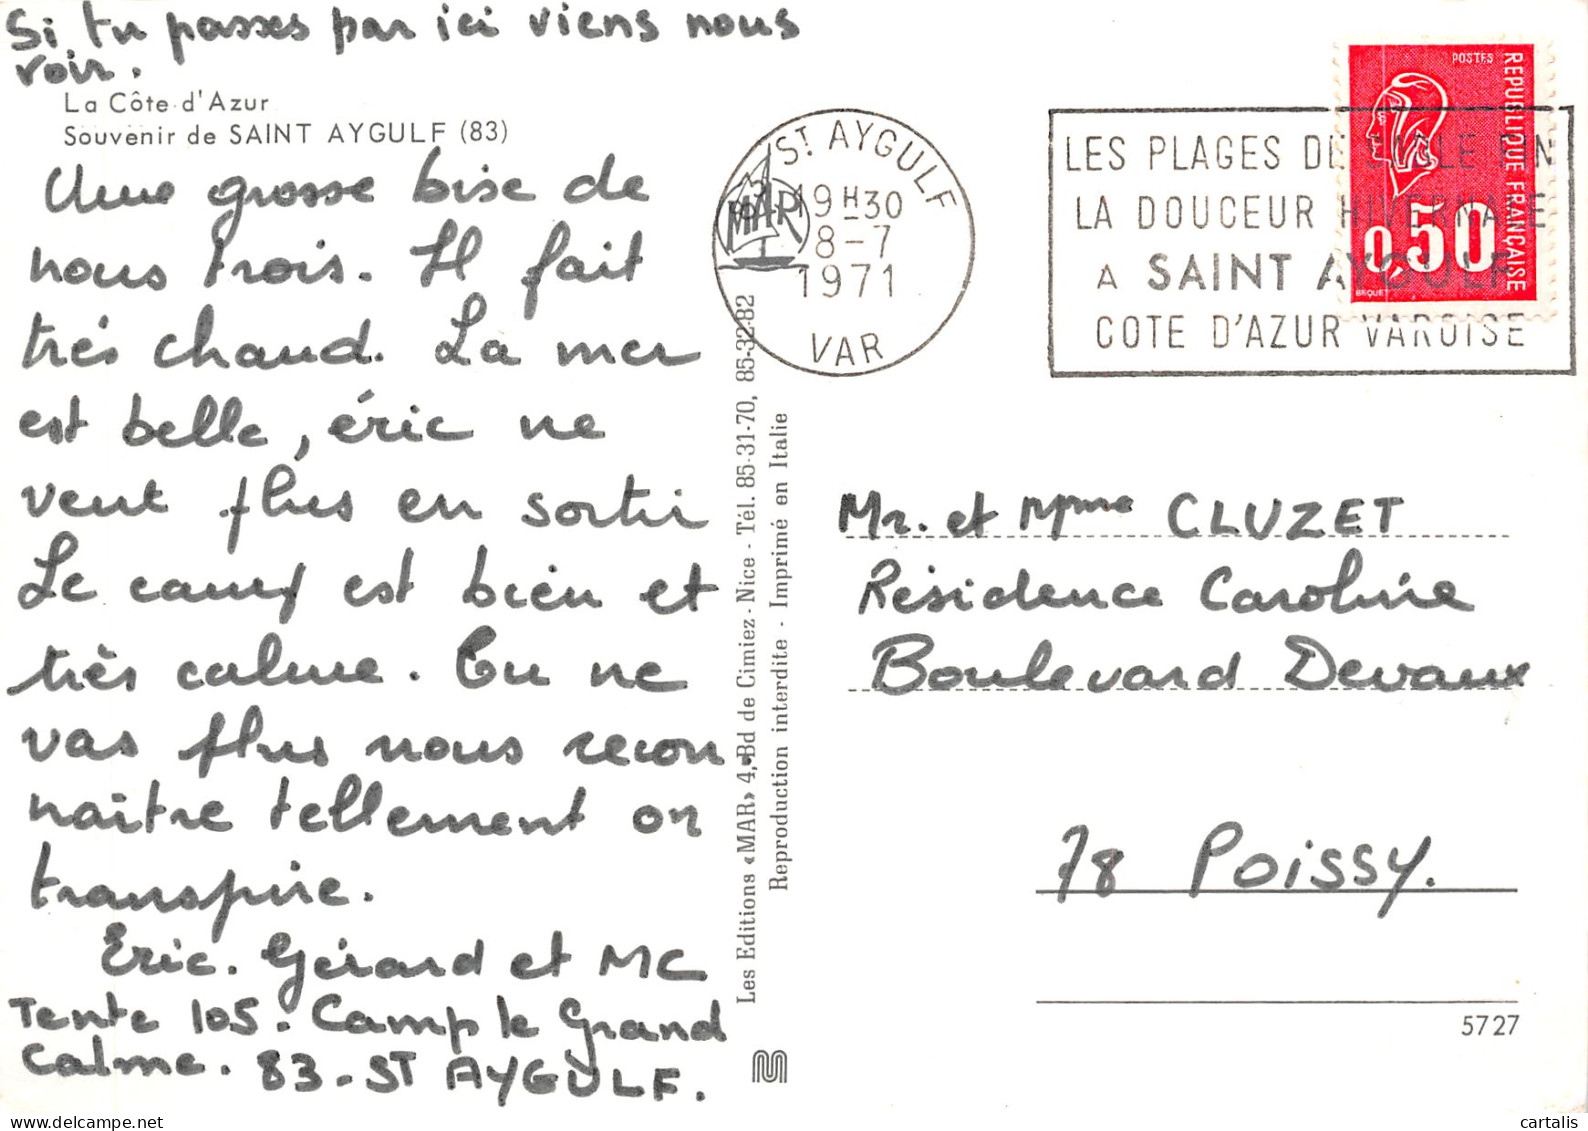 Si tu passes par ici viens nous
voir.
La Côte d'Azur
Souvenir de SAINT AYGULF (83)
Une grosse bise de
nous trois. Il fait
très chaud. La mer
est belle, éric ne
veut plus en sortir
Le camp est bien et
très calme. Tu ne
vas plus nous recon
naitre tellement on
transpire.
Eric. Gérard et MC
Tente 105. Camp le Grand
Calme. 83-ST AYGULF.
Les Editions «MAR» 4, Bd de Cimiez - Nice - Tél. 85-31-70, 85-32-82
Reproduction interdite - Imprimé en Italie
MAR
ST AYGULF
19H30
8-7
1971
VAR
LES PLAGES DE SABLE FIN
LA DOUCEUR HIVERNALE
A SAINT AYGULF
COTE D'AZUR VAROISE
POSTES
REPUBLIQUE FRANÇAISE
0,50
BEQUET
Mr. et Mme CLUZET
Résidence Caroline
Boulevard Devaux
78 Poissy.
5727
delcampe.net
cartalis